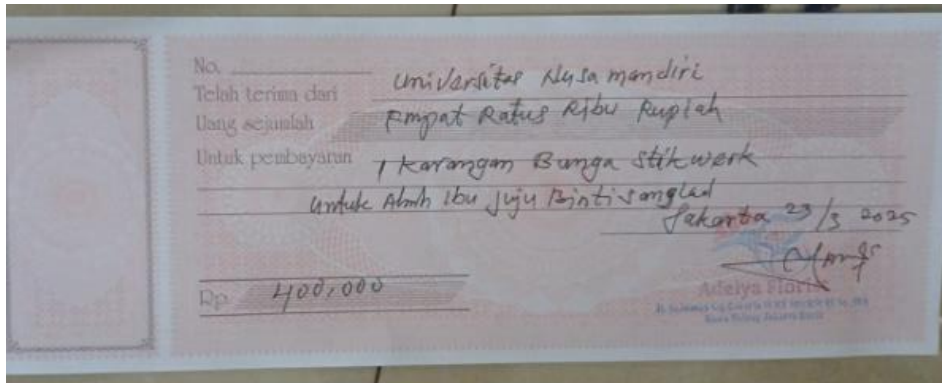 No.
Telah terima dari Universitas Nusa mandiri
Uang sejumlah Empat Ratus Ribu Rupiah
Untuk pembayaran 1 Karangan Bunga Stikwerk
untuk Almh Ibu Juju Binti Sanglad
Jakarta 23/3 2025
Adelya Florist
Rp. 400,000
Jakarta Barat